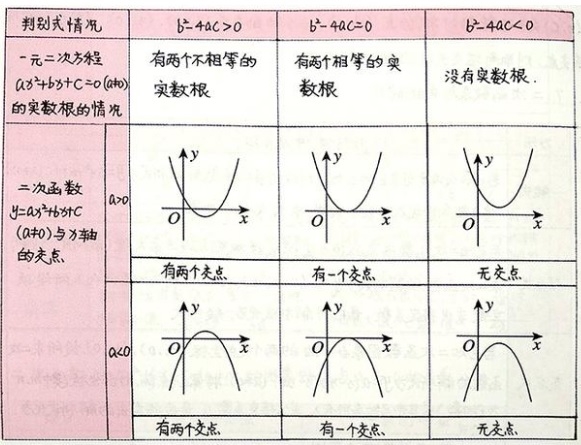 判别式情况
b²-4ac>0
b²-4ac=0
b²-4ac<0
一元二次方程
ax²+bx+c=0(a≠0)
的实数根的情况
有两个不相等的
实数根
有两个相等的实
数根
没有实数根.
二次函数
y=ax²+bx+c
(a≠0)与x轴
的交点
a>0
y
O
x
y
O
x
y
O
x
有两个交点
有一个交点
无交点
a<0
y
O
x
y
O
x
y
O
x
有两个交点
有一个交点
无交点